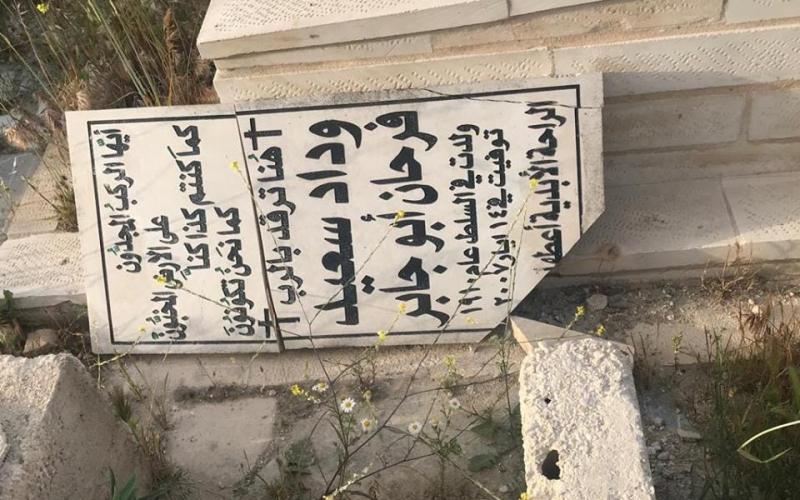 أيها الركب المجدون
على الأرض المخبون
كما كنتم كذا كنا
كما نحن تكونون
هنا ترقد بالرب
وداد سعيد
فرحان أبو جابر
ولدت في السلط عام ١٩١٠
توفيت في ١٤ ايار ٢٠٠٧
الراحة الأبدية أعطها